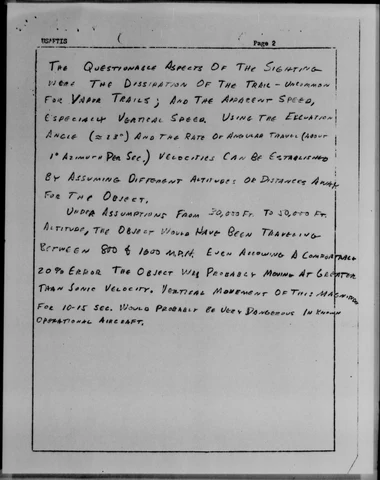 US/FTIS ( ( Page 2
THE QUESTIONABLE ASPECTS OF THE SIGHTING
WERE THE DISSIPATION OF THE TRAIL - UNCOMMON
FOR VAPOR TRAILS; AND THE APPARENT SPEED,
ESPECIALLY VERTICAL SPEED. USING THE ELEVATION
ANGLE (≈ 23°) AND THE RATE OF ANGULAR TRAVEL (ABOUT
1° AZIMUTH PER SEC.) VELOCITIES CAN BE ESTABLISHED
BY ASSUMING DIFFERENT ALTITUDES OR DISTANCES AWAY
FOR THE OBJECT.
UNDER ASSUMPTIONS FROM 30,000 FT. TO 50,000 FT.
ALTITUDE, THE OBJECT WOULD HAVE BEEN TRAVELING
BETWEEN 800 & 1000 M.P.H. EVEN ALLOWING A COMFORTABLE
20% ERROR THE OBJECT WAS PROBABLY MOVING AT GREATER
THAN SONIC VELOCITY. VERTICAL MOVEMENT OF THIS MAGNITUDE
FOR 10-15 SEC. WOULD PROBABLY BE VERY DANGEROUS IN KNOWN
OPERATIONAL AIRCRAFT.